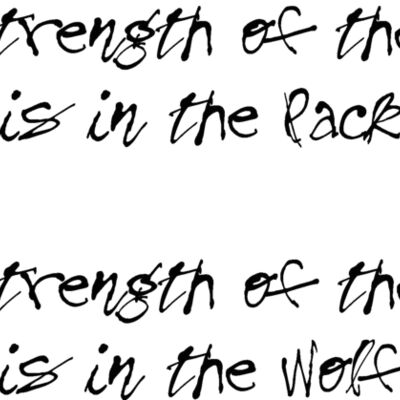 trength of the
is in the Pack
trength of the
is in the Wolf